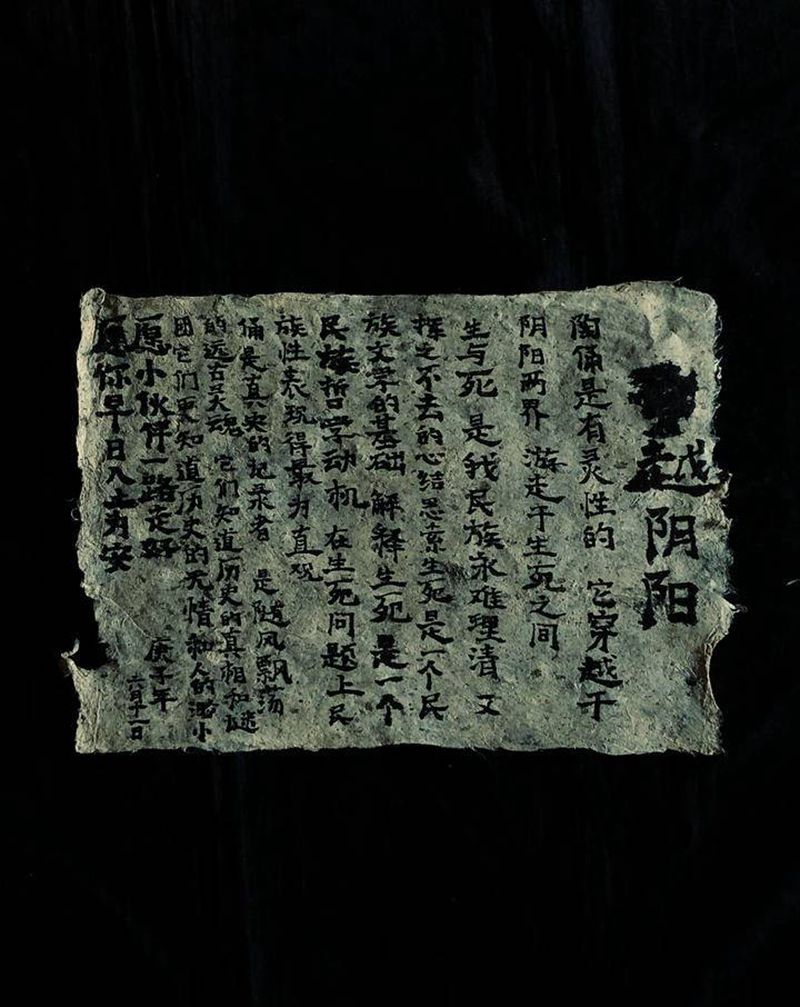 越阴阳
陶俑是有灵性的 它穿越于
阴阳两界 游走于生死之间
生与死 是我民族永难理清 又
挥之不去的心结思索生死是一个民
族文章的基础 解释生死 是一个
民族哲学动机 在生死问题上民
族性表现得最为直观
俑是真实的记录者 是随风飘荡
的远古灵魂 它们知道历史的真相和谜
团它们更知道历史的无情和人的渺小
愿小伙伴一路走好
愿你早日入土为安
庚子年